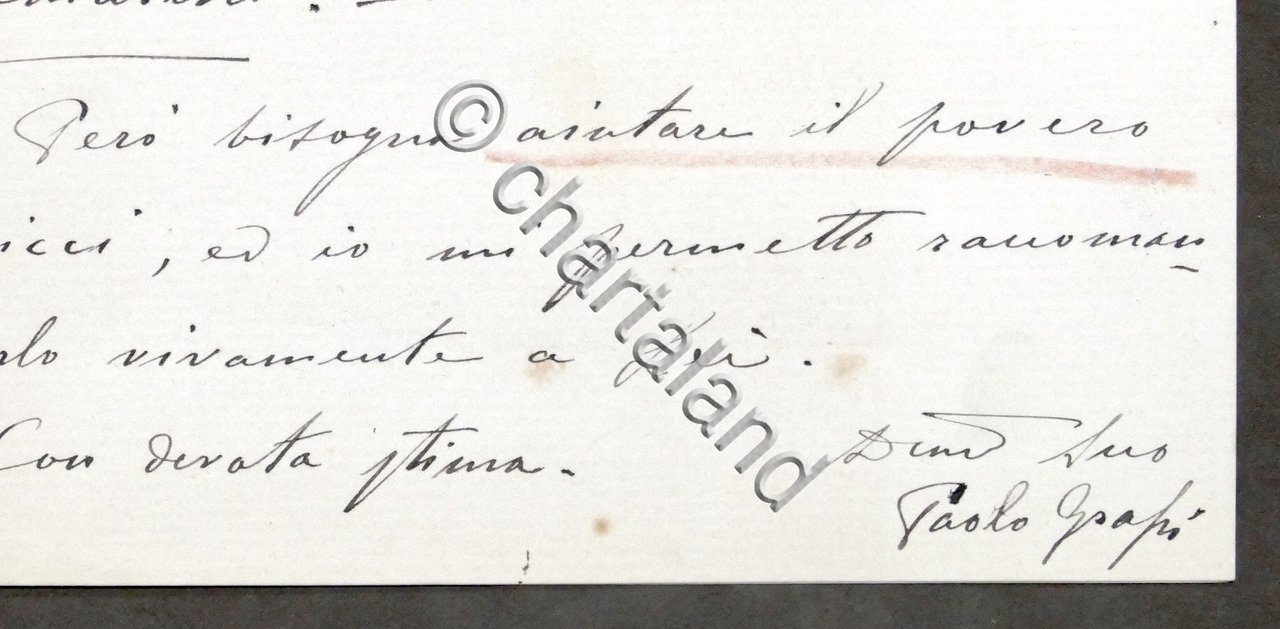 Però bisogna aiutare il povero
icci, ed io mi permetto raccoman-
lo vivamente a Lei.
Con devota stima.
Dev.mo Suo
Paolo Grassi
© chartaland